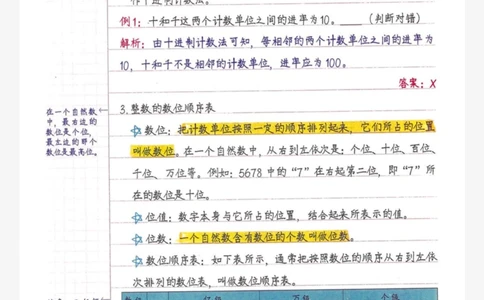 作十进制计数法。
例1：十和千这两个计数单位之间的进率为10。____（判断对错）
解析：由十进制计数法可知，每相邻的两个计数单位之间的进率为
10，十和千不是相邻的计数单位，进率应为100。
答案：X
在一个自然数
中，最右边的
数位是个位，
最左边的那个
数位是最高位。
3.整数的数位顺序表
☆数位：把计数单位按照一定的顺序排列起来，它们所占的位置
叫做数位。在一个自然数中，从右到左依次是：个位、十位、百位、
千位、万位等。例如：5678 中的“7”在右起第二位，即“7”所
在的数位是十位。
☆位值：数字本身与它所占的位置，结合起来所表示的值。
☆位数：一个自然数含有数位的个数叫做位数。
☆数位顺序表：如下表所示，通常把按照数位的顺序从右到左依
次排列的数位表，叫做数位顺序表。
亿级 万级 个级